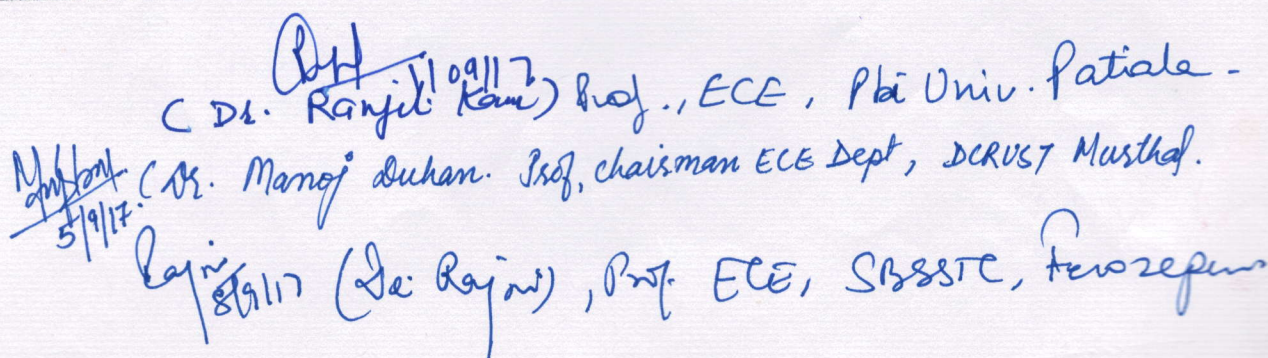 11/09/17
(Dr. Ranjit Kaur) Prof., ECE, Pbi Univ. Patiala -
5/9/17. (Dr. Manoj Duhan. Prof, chairman ECE Dept, DCRUST Murthal.
Rajni 8/9/17 (Dr. Rajni), Prof. ECE, SBSSTC, Ferozepur